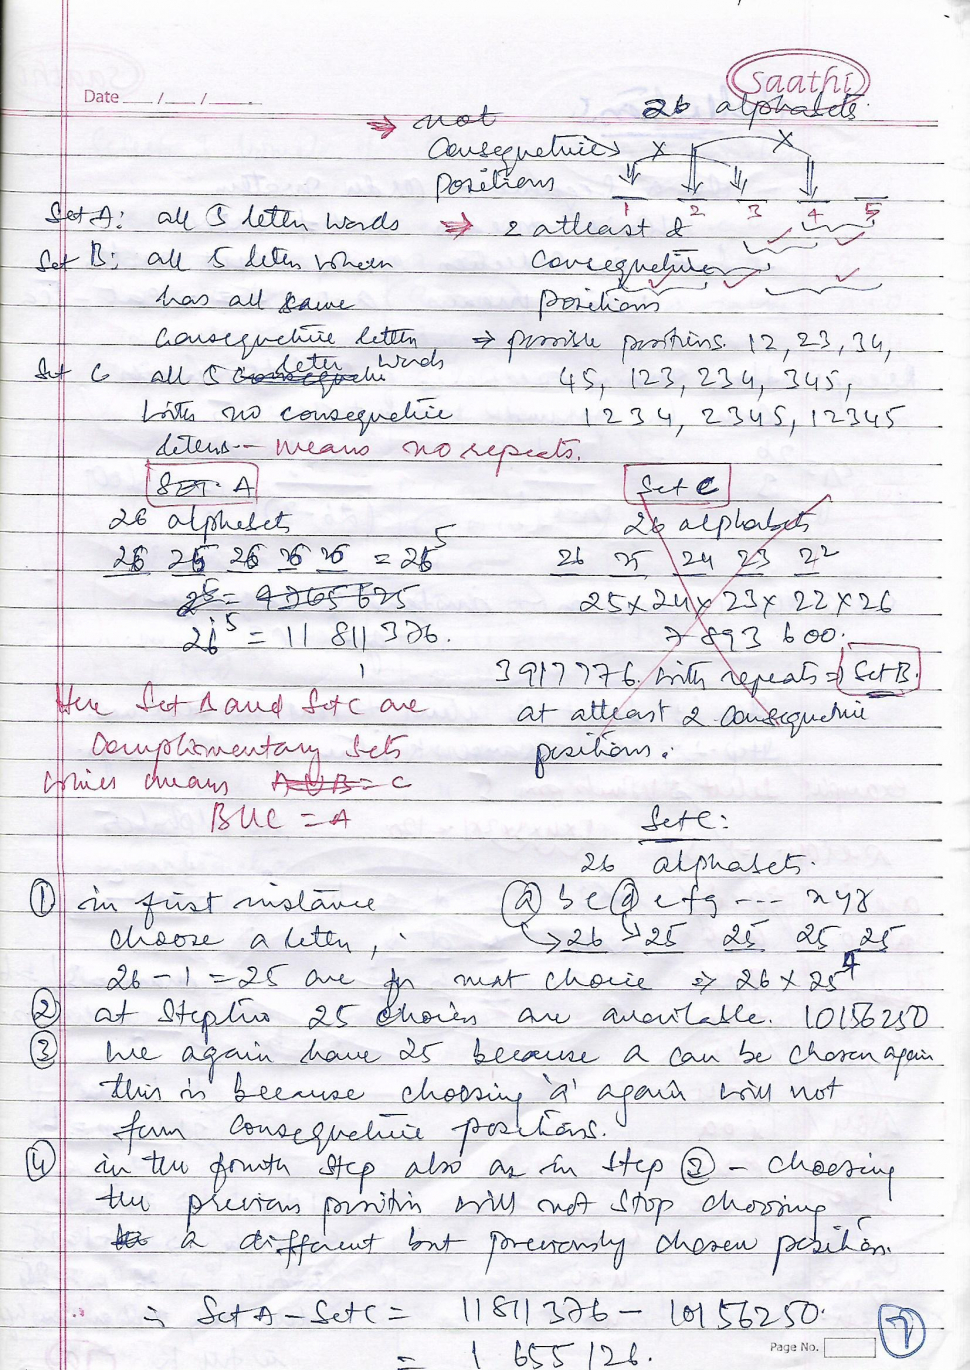 Saathi
Date ___/___/___
26 alphabets.
⇒ not
Consequetuies
positions
1 2 3 4 5
Set A: all 5 letter words
⇒ 2 atleast &
Set B: all 5 letter when
Consequetive
has all same
positions
Consequetive letter
⇒ possible positions. 12, 23, 34,
Set C all 5 letter words
45, 123, 234, 345,
with no consequetive
1234, 2345, 12345
letters - means no repeats.
Set A
26 alphabets
26 26 26 26 26 = 26^5
= 9765625
26^5 = 11811376.
Set C
26 alphabets
26 25 24 23 22
25x24x23x22x26
7893600.
3917776. with repeats ⇒ Set B.
at atleast 2 consequetive
positions.
Here Set B and Set C are
Complimentary Sets
which means A U B = C
BUC = A
Set C:
26 alphabets.
① in first instance
(a) b c (d) e f g --- x y z
choose a letter,
26 25 25 25 25
26 - 1 = 25 are for next choice ⇒ 26 x 25^4
② at Step two 25 choices are available. 10156250
③ We again have 25 because a can be chosen again
this is because choosing 'a' again will not
form consequetive positions.
④ in the fourth step also as in step ③ - choosing
the previous position will not stop choosing
a different but previously chosen position.
∴ Set A - Set C = 11811376 - 10156250.
= 1655126.
Page No.
7